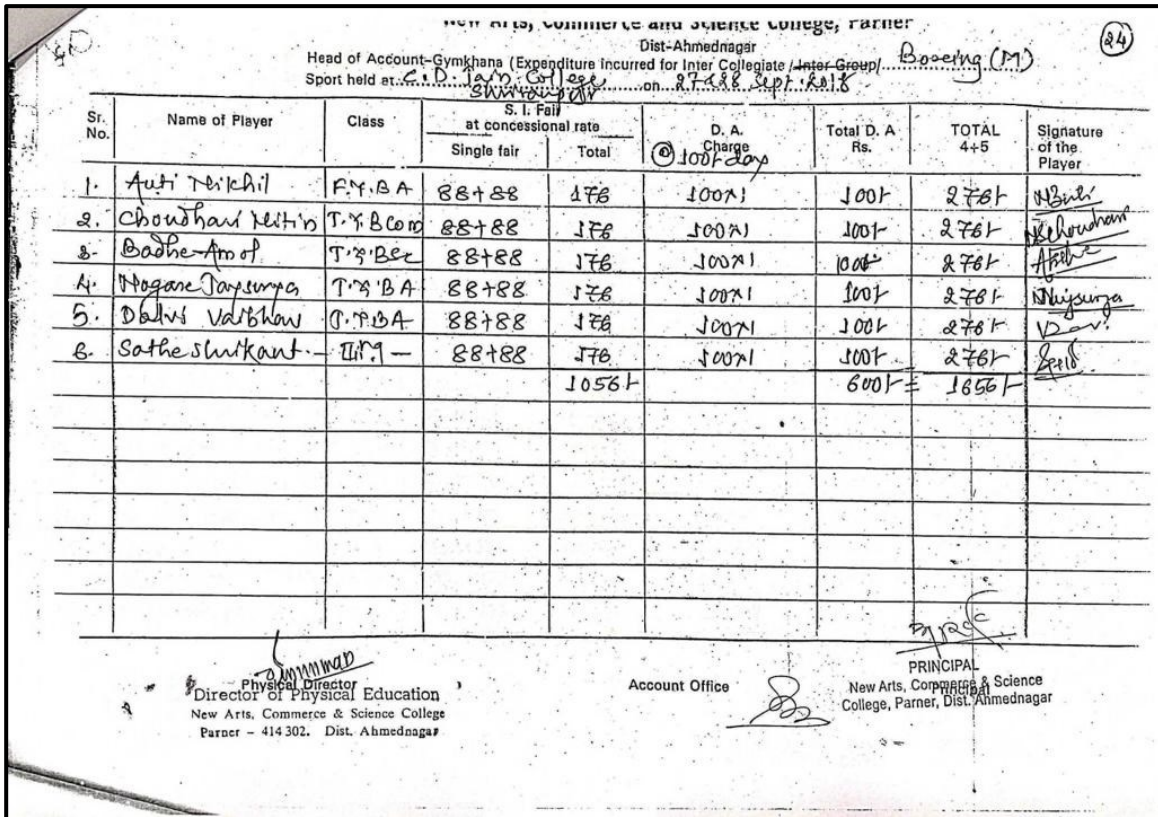 New Arts, Commerce and Science College, Parner
24
Dist-Ahmednagar
Head of Account-Gymkhana (Expenditure Incurred for Inter Collegiate / Inter Group/ Boxing (M)
Sport held at C.D. Jain College Shrirampur on 27&28 Sept. 2018
Sr. No. Name of Player Class S. I. Fair at concessional rate Single fair Total D. A. Charge @ 100/- day Total D. A Rs. TOTAL 4+5 Signature of the Player
1. Auti Nikhil F.Y.BA 88+88 176 100x1 100/- 276/-
2. Choudhari Nitin T.Y.BCom 88+88 176 100x1 100/- 276/- Nchoudhari
3. Badhe Amol T.Y.BSc 88+88 176 100x1 100/- 276/-
4. Nagare Jaysurya T.Y.BA 88+88 176 100x1 100/- 276/-
5. Dalvi Vaibhav 88+88 176 100x1 100/- 276/-
6. Sathe Shrikant - 88+88 176 100x1 100/- 276/-
1056/- 600/- = 1656/-
Physical Director
Director of Physical Education
New Arts, Commerce & Science College
Parner - 414 302. Dist. Ahmednagar
Account Office
PRINCIPAL
Principal
New Arts, Commerce & Science
College, Parner, Dist. Ahmednagar